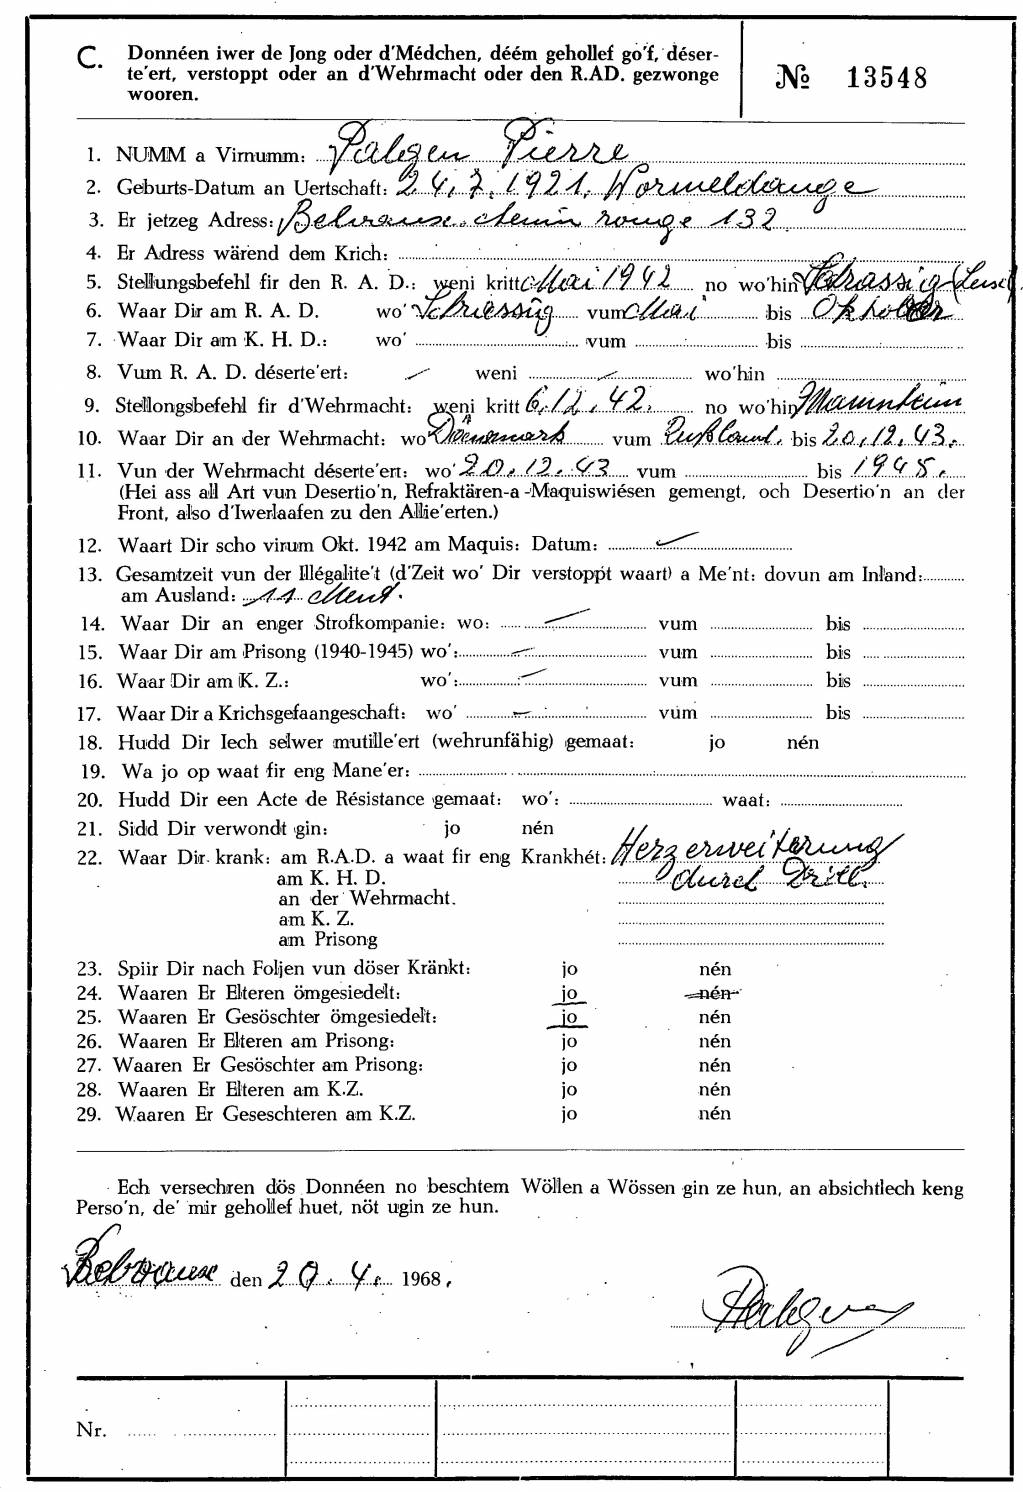 C. Donnéen iwer de Jong oder d'Médchen, déém gehollef go'f, déser-
te'ert, verstoppt oder an d'Wehrmacht oder den R.AD. gezwonge
wooren.
№ 13548
1. NUMM a Virnumm: Palgen Pierre
2. Geburts-Datum an Uertschaft: 24.7.1921. Wormeldange
3. Er jetzeg Adress: chemin rouge 132
4. Er Adress wärend dem Krich:
5. Stellungsbefehl fir den R. A. D.: weni kritt Mai 1942 no wo'hin Schrassig
6. Waar Dir am R. A. D. wo' vum Mai bis Oktober
7. Waar Dir am K. H. D.: wo' vum bis
8. Vum R. A. D. déserte'ert: weni wo'hin
9. Stellongsbefehl fir d'Wehrmacht: weni kritt 6.12.42. no wo'hin Mannheim
10. Waar Dir an der Wehrmacht: wo Dänemark vum Rußland. bis 20.12.43.
11. Vun der Wehrmacht déserte'ert: wo' 20.12.43 vum bis 1945.
(Hei ass all Art vun Desertio'n, Refraktären-a-Maquiswiésen gemengt, och Desertio'n an der
Front, also d'Iwerlaafen zu den Allie'erten.)
12. Waart Dir scho virum Okt. 1942 am Maquis: Datum:
13. Gesamtzeit vun der Illégalite't (d'Zeit wo' Dir verstoppt waart) a Me'nt: dovun am Inland:
am Ausland: 11 Ment.
14. Waar Dir an enger Strofkompanie: wo: vum bis
15. Waar Dir am Prisong (1940-1945) wo': vum bis
16. Waar Dir am K. Z.: wo': vum bis
17. Waar Dir a Krichsgefaangeschaft: wo' vum bis
18. Hudd Dir Iech selwer mutille'ert (wehrunfähig) gemaat: jo nén
19. Wa jo op waat fir eng Mane'er:
20. Hudd Dir een Acte de Résistance gemaat: wo': waat:
21. Sidd Dir verwondt gin: jo nén
22. Waar Dir krank: am R.A.D. a waat fir eng Krankhét: Herzerweiterung
am K. H. D. durch Drill.
an der Wehrmacht.
am K. Z.
am Prisong
23. Spiir Dir nach Foljen vun döser Kränkt: jo nén
24. Waaren Er Elteren ömgesiedelt: jo nén
25. Waaren Er Gesöschter ömgesiedelt: jo nén
26. Waaren Er Elteren am Prisong: jo nén
27. Waaren Er Gesöschter am Prisong: jo nén
28. Waaren Er Elteren am K.Z. jo nén
29. Waaren Er Geseschteren am K.Z. jo nén
Ech versechren dös Donnéen no beschtem Wöllen a Wössen gin ze hun, an absichtlech keng
Perso'n, de' mir gehollef huet, nöt ugin ze hun.
den 20. 4. 1968.
Palgen
Nr.